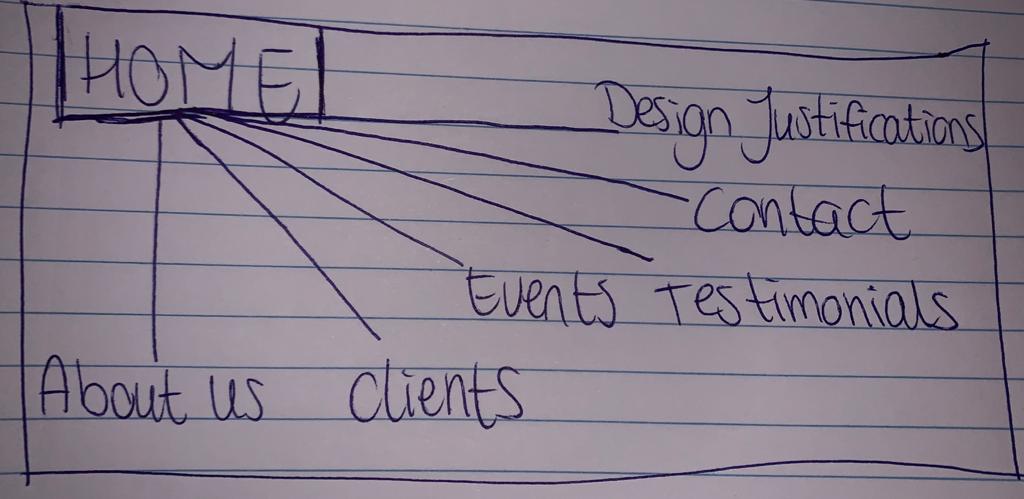 HOME
Design Justifications
Contact
Events Testimonials
About us Clients